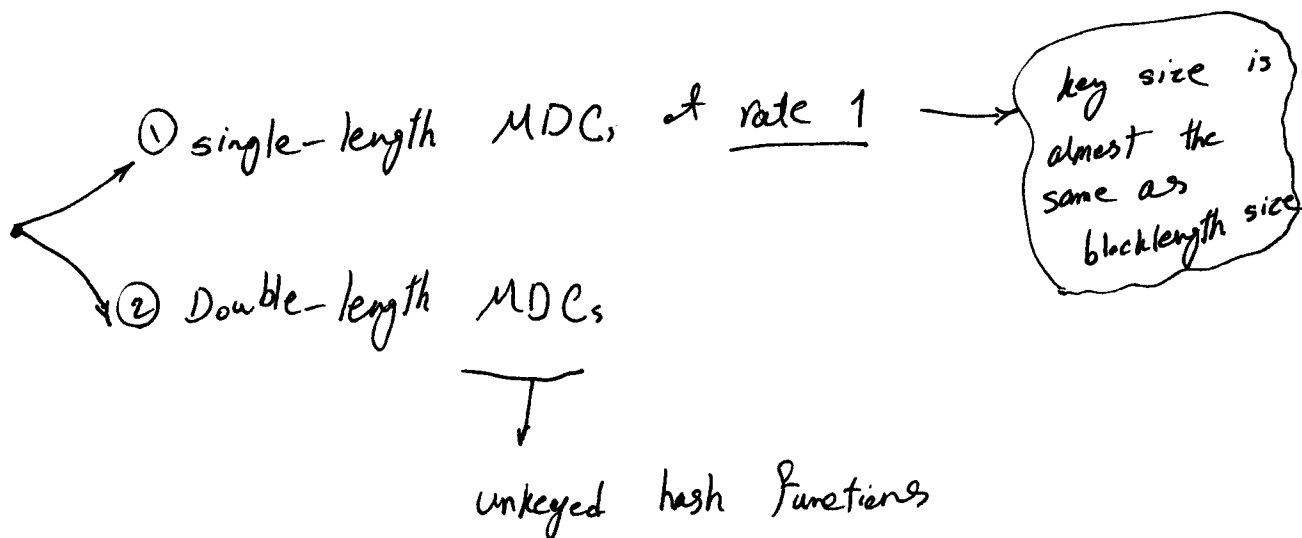 ① single-length MDCs of rate 1
key size is
almost the
same as
blocklength size
② Double-length MDCs
unkeyed hash functions